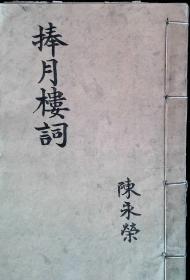 捧月樓詞
陳永榮